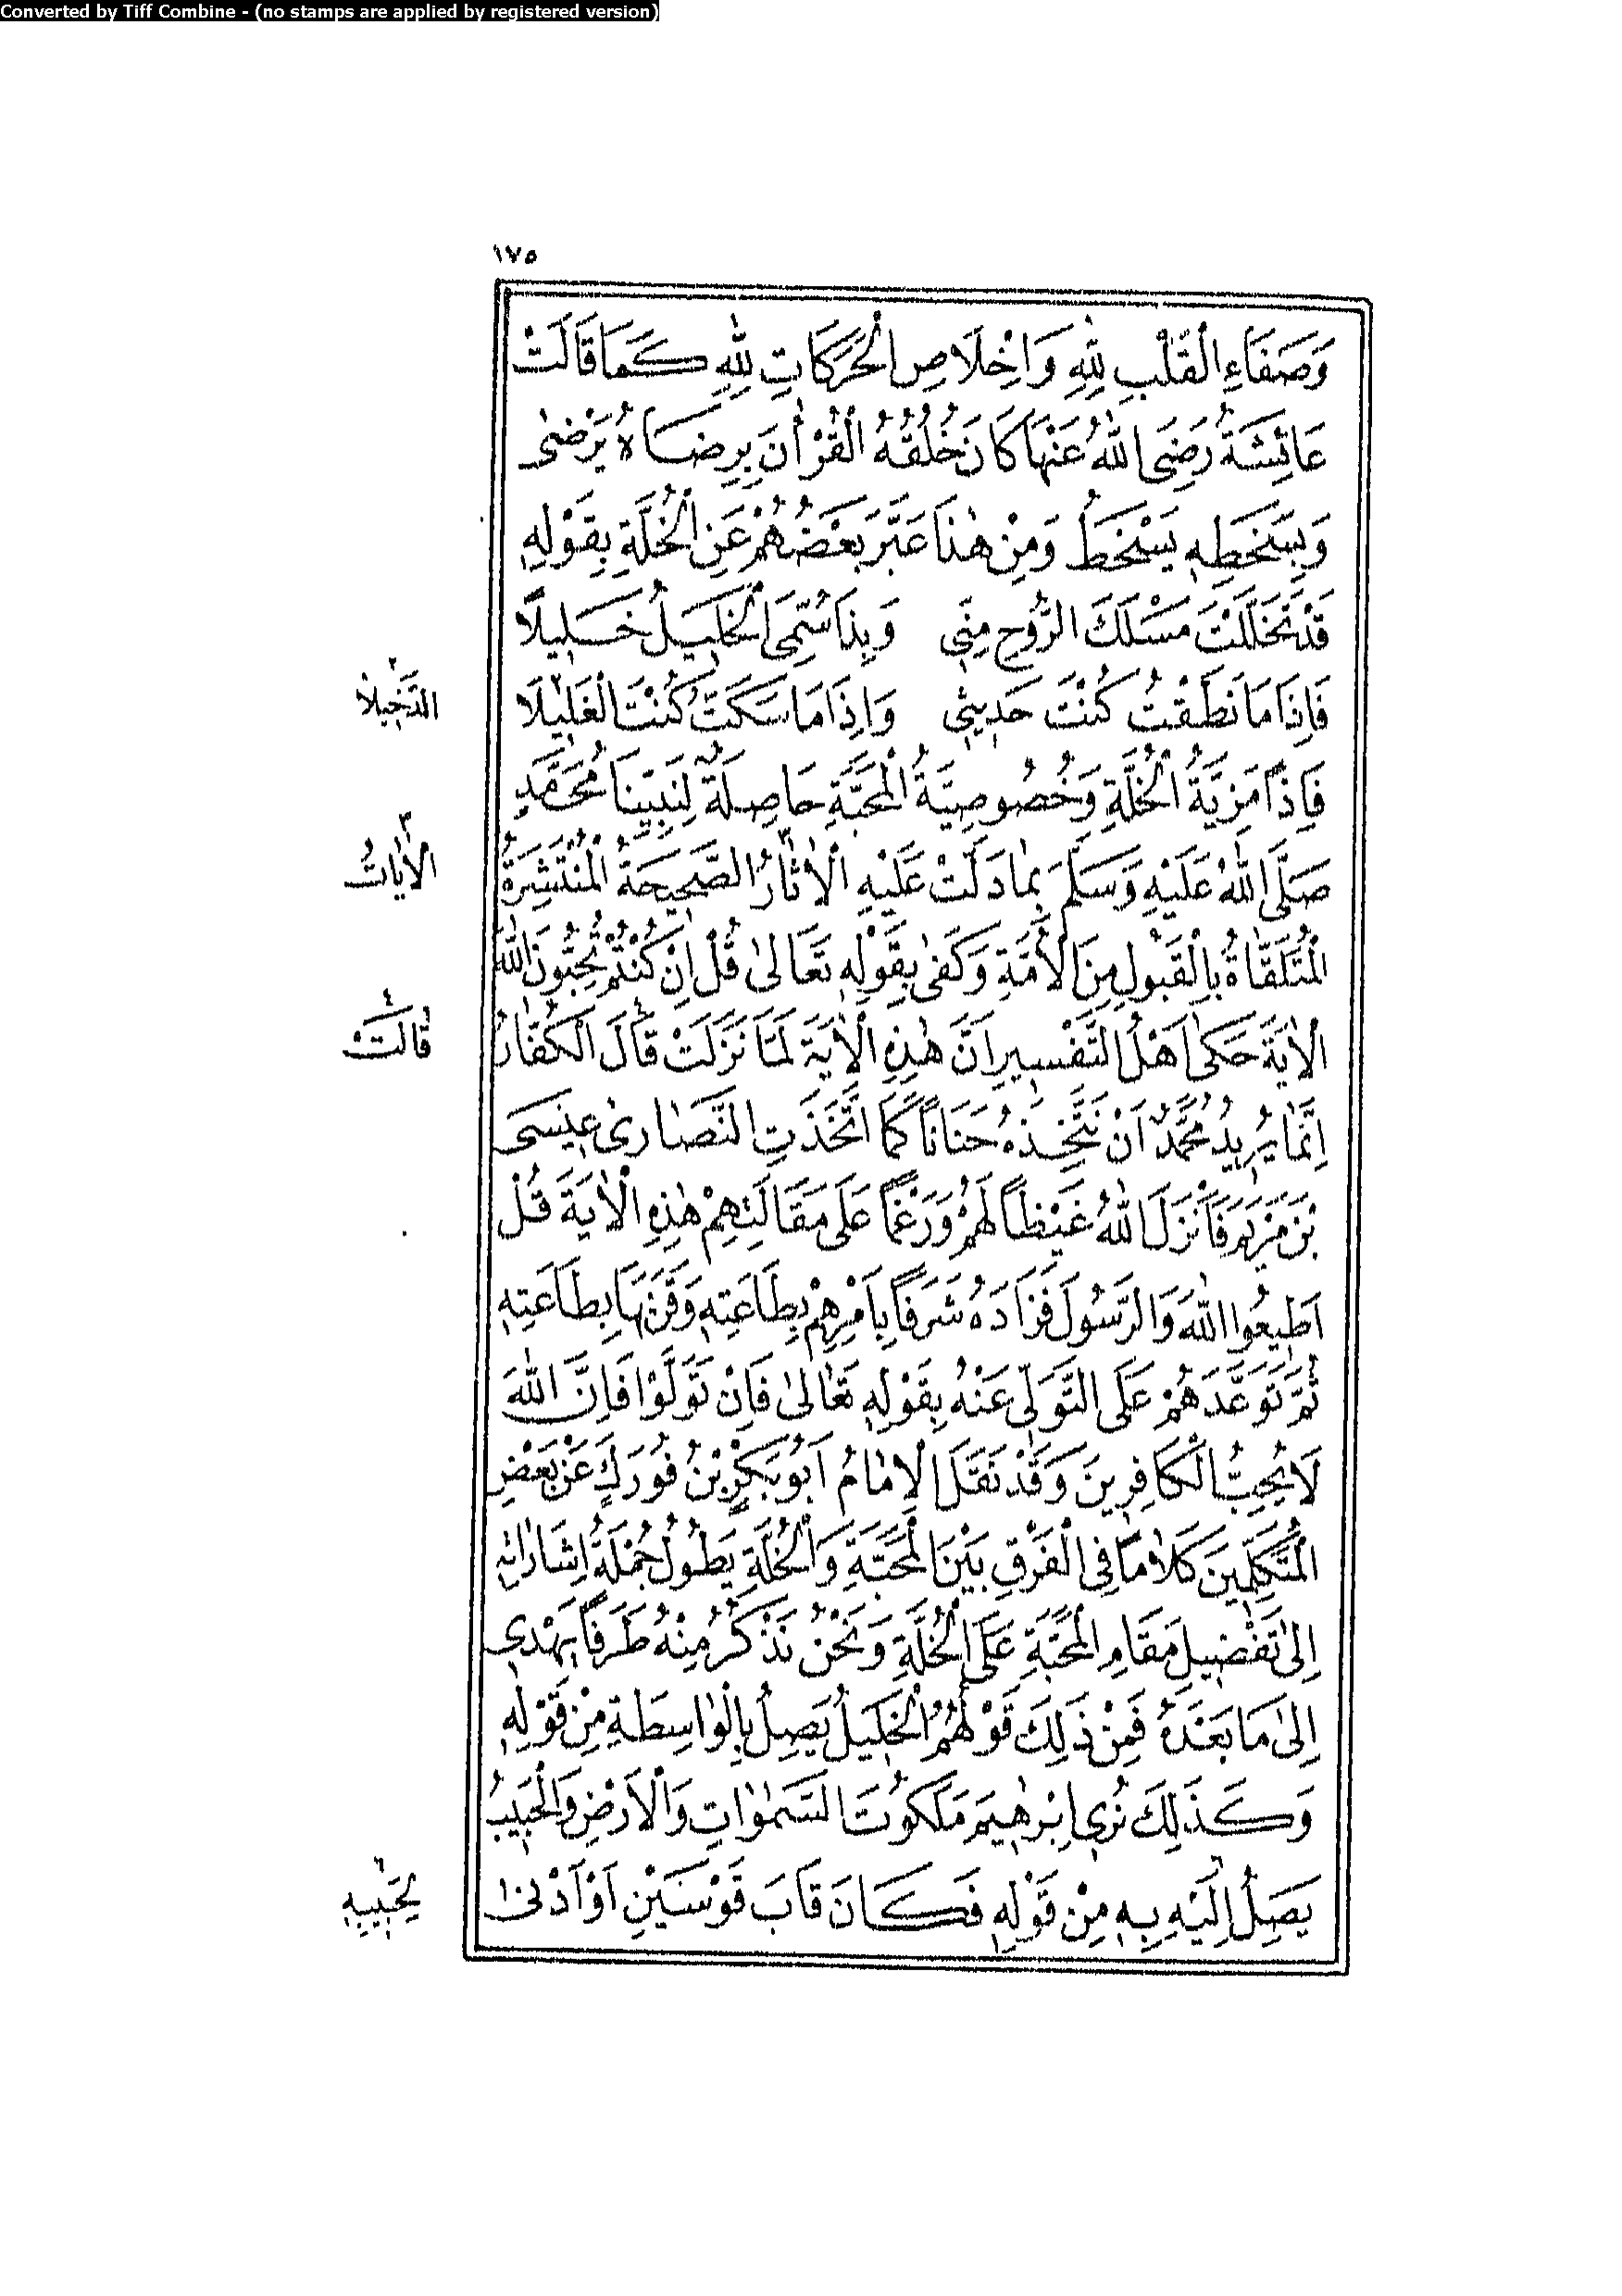 Converted by Tiff Combine - (no stamps are applied by registered version)
١٧٥
وَصَفَاءِ الْقَلْبِ لِلّٰهِ وَاِخْلَاصِ الْحَرَكَاتِ لِلّٰهِ كَمَا قَالَتْ
عَائِشَةُ رَضِيَ اللّٰهُ عَنْهَا كَانَ خُلُقُهُ الْقُرْاٰنَ بِرِضَاهُ يَرْضٰى
وَبِسَخَطِهِ يَسْخَطُ وَمِنْ هٰذَا عَبَّرَ بَعْضُهُمْ عَنِ الْخُلَّةِ بِقَوْلِهِ
قَدْ تَخَلَّلْتَ مَسْلَكَ الرُّوحِ مِنِّي وَبِذَا سُمِّيَ الْخَلِيلُ خَلِيلًا
فَاِذَا مَا نَطَقْتُ كُنْتَ حَدِيثِي وَاِذَا مَا سَكَتُّ كُنْتَ الْغَلِيلَا
فَاِذًا مَزِيَّةُ الْخُلَّةِ وَخُصُوصِيَّةُ الْمَحَبَّةِ حَاصِلَةٌ لِنَبِيِّنَا مُحَمَّدٍ
صَلَّى اللّٰهُ عَلَيْهِ وَسَلَّمَ بِمَا دَلَّتْ عَلَيْهِ الْاٰثَارُ الصَّحِيحَةُ الْمُنْتَشِرَةُ
الْمُتَلَقَّاةُ بِالْقَبُولِ مِنَ الْاُمَّةِ وَكَفٰى بِقَوْلِهِ تَعَالٰى قُلْ اِنْ كُنْتُمْ تُحِبُّونَ اللّٰهَ
الْاٰيَةَ حَكٰى اَهْلُ التَّفْسِيرِ اَنَّ هٰذِهِ الْاٰيَةَ لَمَّا نَزَلَتْ قَالَ الْكُفَّارُ
اِنَّمَا يُرِيدُ مُحَمَّدٌ اَنْ نَتَّخِذَهُ حَنَانًا كَمَا اتَّخَذَتِ النَّصَارٰى عِيسَى
بْنَ مَرْيَمَ فَاَنْزَلَ اللّٰهُ غَيْظًا لَهُمْ وَرَغْمًا عَلَى مَقَالَتِهِمْ هٰذِهِ الْاٰيَةَ قُلْ
اَطِيعُوا اللّٰهَ وَالرَّسُولَ فَزَادَهُ شَرَفًا بِاَمْرِهِمْ بِطَاعَتِهِ وَقَرَنَهَا بِطَاعَتِهِ
ثُمَّ تَوَعَّدَهُمْ عَلَى التَّوَلِّي عَنْهُ بِقَوْلِهِ تَعَالٰى فَاِنْ تَوَلَّوْا فَاِنَّ اللّٰهَ
لَا يُحِبُّ الْكَافِرِينَ وَقَدْ نَقَلَ الْاِمَامُ اَبُو بَكْرِ بْنُ فُورَكٍ عَنْ بَعْضِ
الْمُتَكَلِّمِينَ كَلَامًا فِي الْفَرْقِ بَيْنَ الْمَحَبَّةِ وَالْخُلَّةِ يَطُولُ جُمْلَةُ اِشَارَاتِهِ
اِلٰى تَفْضِيلِ مَقَامِ الْمَحَبَّةِ عَلَى الْخُلَّةِ وَنَحْنُ نَذْكُرُ مِنْهُ طَرَفًا يَهْدِي
اِلٰى مَا بَعْدَهُ فَمِنْ ذٰلِكَ قَوْلُهُمُ الْخَلِيلُ يَصِلُ بِالْوَاسِطَةِ مِنْ قَوْلِهِ
وَكَذٰلِكَ نُرِي اِبْرٰهِيمَ مَلَكُوتَ السَّمٰوَاتِ وَالْاَرْضِ وَالْحَبِيبُ
يَصِلُ اِلَيْهِ بِهِ مِنْ قَوْلِهِ فَكَانَ قَابَ قَوْسَيْنِ اَوْ اَدْنٰى
٣
الْاٰيَاتُ
٤
قَالَتْ
٦
لِحَبِيبِهِ